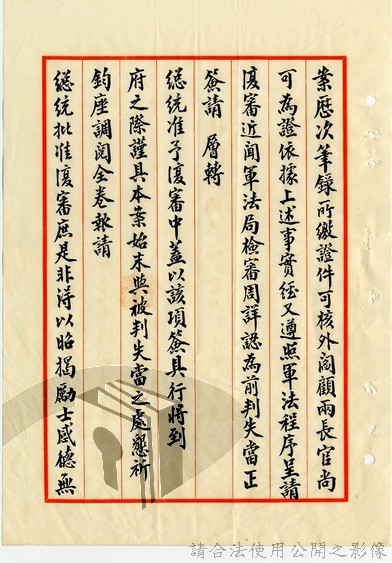 案歷次筆錄所繳證件可核外閻顧兩長官尚
可為證依據上述事實經又遵照軍法程序呈請
復審近聞軍法局檢審周詳認為前判失當正
簽請 層轉
總統准予復審中蓋以該項簽具行將到
府之際謹具本案始末與被判失當之處懇祈
鈞座調閱全卷報請
總統批准復審庶是非得以昭揭勵士感德無
請合法使用公開之影像